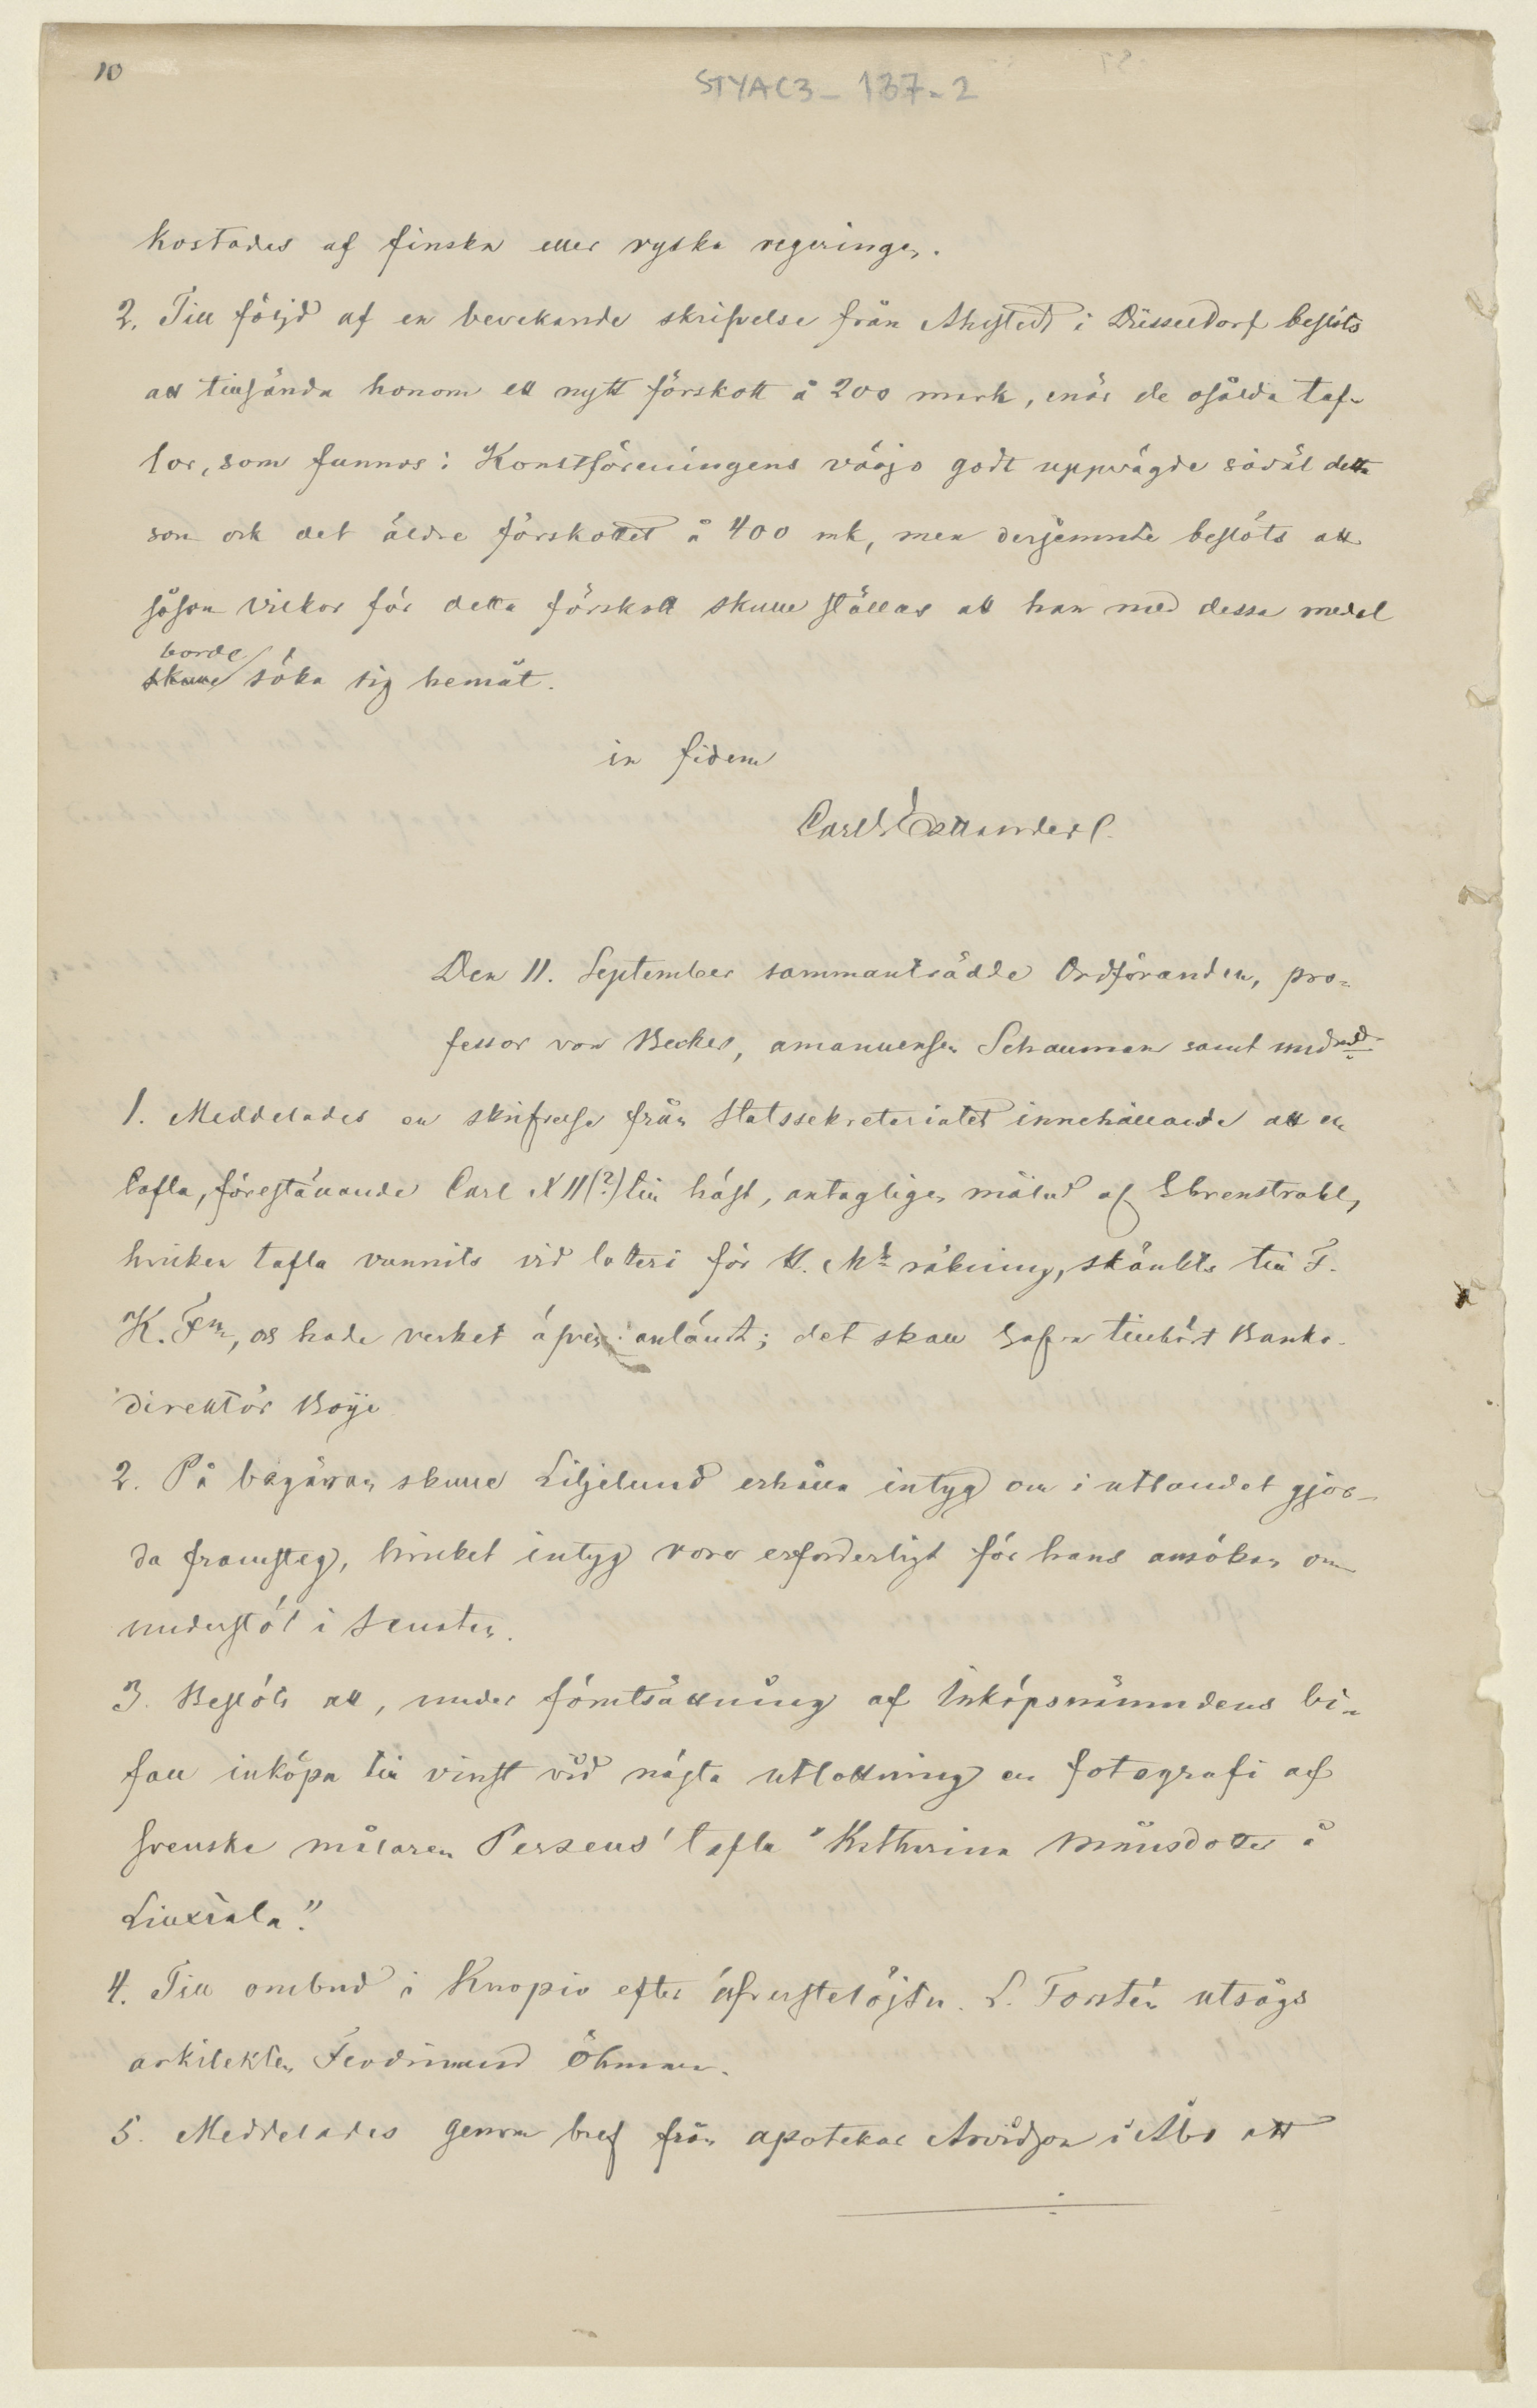 10
STYAC3_137-2
kostades af finska eller ryska regeringen.
2. Till följd af en bevekande skrifvelse från Ahlstedt i Düsseldorf beslöts
att tillsända honom ett nytt förskott å 200 mark, enär de osålda taf-
lor, som funnos i Konstföreningens värjo godt uppvägde såväl detta
som ock det äldre förskottet å 400 mk, men derjemnte beslöts att
såsom vilkor för detta förskott skulle ställas att han med dessa medel
borde
skulle söka sig hemåt.
in fidem
Carl G Estlander
Den 11. September sammanträdde Ordföranden, pro-
fessor von Becker, amanuensen Schauman samt undertd.
1. Meddelades en skrifvelse från Statssekretariatet innehållande att en
tafla, föreställande Carl XII(?) till häst, antagligen målad af Ehrenstrahl,
hvilken tafla vunnits vid lotteri för H. Mts räkning, skänkts till F.
K. Fen, os hade verket äfven anländt; det skall hafva tillhört Banko-
direktör Boije
2. På begäran skulle Liljelund erhålla intyg om i utlandet gjor-
da framsteg, hvilket intyg vore erforderligt för hans ansökan om
understöd i Senaten.
3. Beslöts att, under förutsättning af Inköpsnämndens bi-
fall inköpa till vinst vid nästa utlottning en fotografi af
svenska målaren Perseus' tafla "Katharina Månsdotter å
Liuxiala".
4. Till ombud i Kuopio efter öfverstelöjtn. L. Torstén utsågs
arkitekten Ferdinand Öhman.
5. Meddelades genom bref från apotekar Arvidson i Åbo att